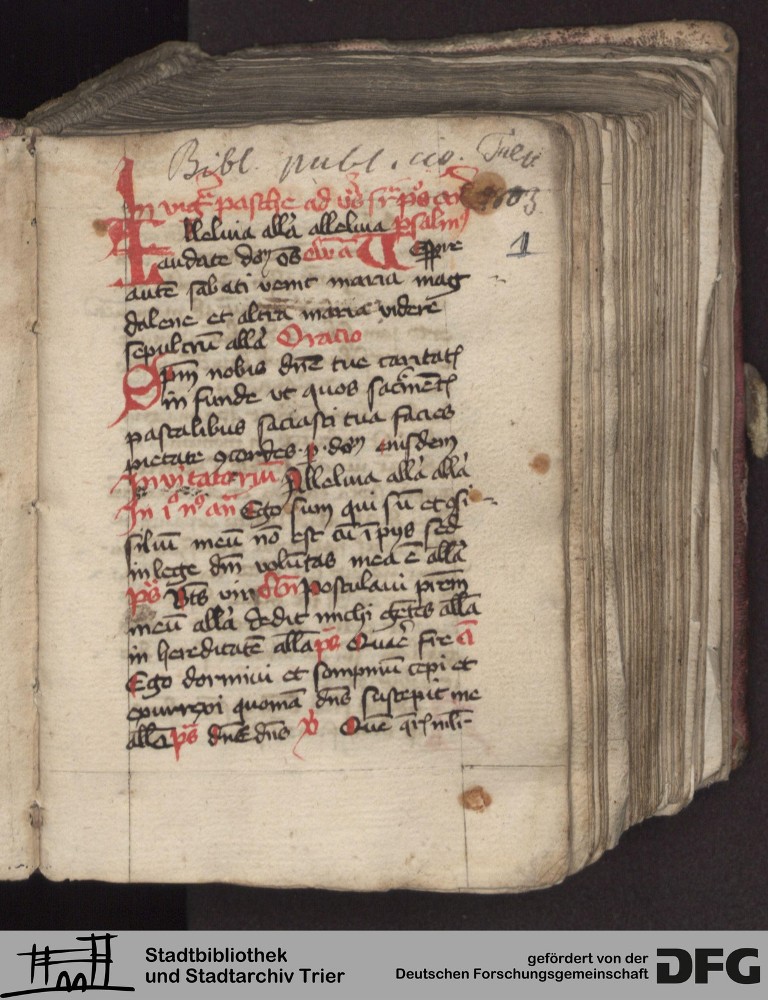 Bibl. publ. civ. Trev.
In vigͣ pasche ad
1
Alleluia allꝛa alleluia psalmꝰ
Laudate dnͫ oēs ewā Vespere
autē sabati venit maria mag
dalene et altera maria videre
sepulcrū allꝛa Oracio
Spm̄ nobis dn̄e tue caritatꝭ
in funde ut quos sacͣmentꝭ
pascalibus saciasti tua facias
pietate ꝯcordes. p. dnͫ eiusdem
Invitatoriū Alleluia allꝛa allꝛa
In iͦ nͦ an̄ Ego sum qui sū et ꝯsi
siliū meū nō est cū īpijs sed
in lege dn̄i volūtas mea ē allꝛa
ps̄ Bt̄s vir Postulavi prēm
meū allꝛa dedit michi gētes allꝛa
in hereditatē allꝛa ps̄ Quare fre a̅
Ego dormivi et sompnū cepi et
exurrexi quoniā dn̄s suscepit me
allꝛa ps̄ dn̄e
Stadtbibliothek
und Stadtarchiv Trier
gefördert von der
Deutschen Forschungsgemeinschaft
DFG